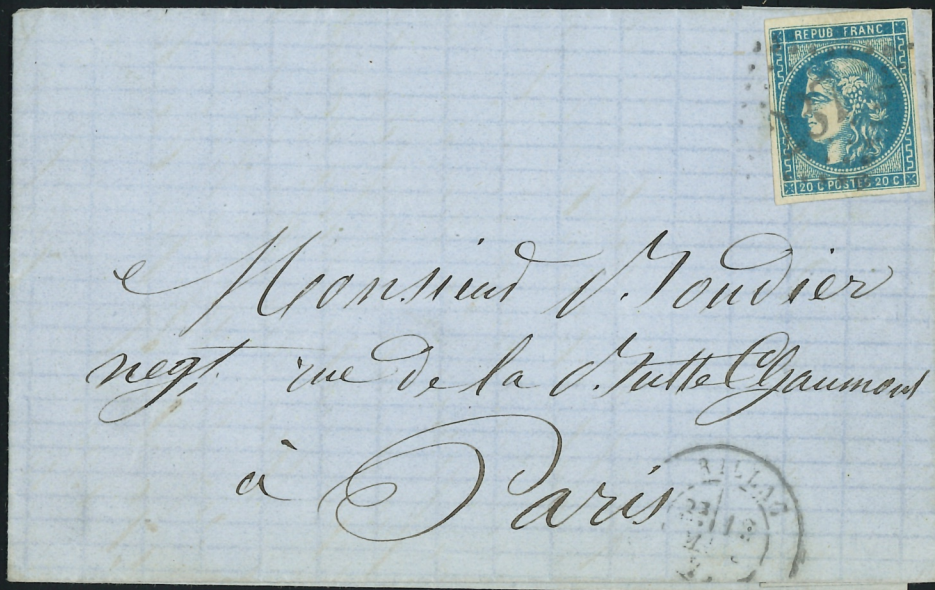 REPUB FRANC
20 C POSTE 20 C
Monsieur Boudier
negt, rue de la Butte Chaumont
à Paris